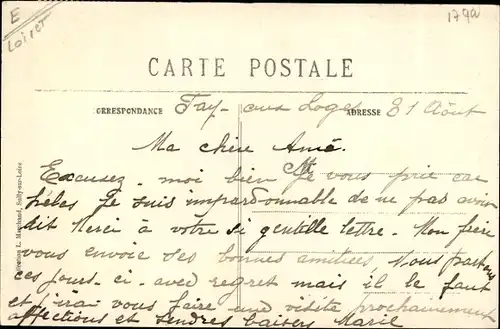 E
Loiret
1790
CARTE POSTALE
CORRESPONDANCE
ADRESSE
Fay-aux Loges 31 Août
Ma chère Amé.
Excusez-moi bien je vous prie car
je suis impardonnable de ne pas avoir
dit merci à votre si gentille lettre. Mon frère
vous envoie ses bonnes amitiées Nous partons
ces jours-ci. avec regret mais il le faut
et j'irai vous faire une visite prochainement
affections et tendres baisers Marie
Collection L. Marchand, Sully-sur-Loire